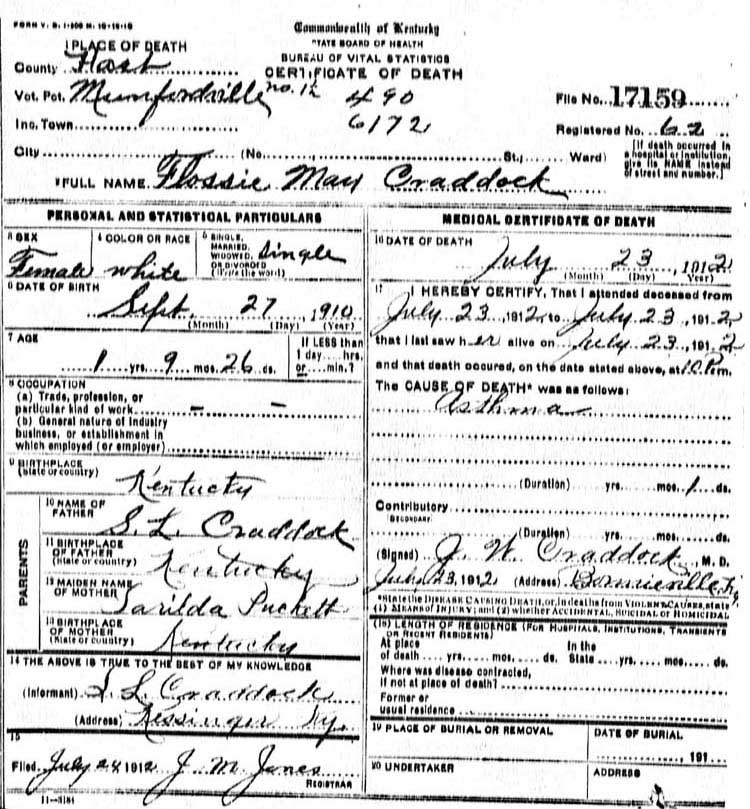 FORM V. S. 1-
Commonwealth of Kentucky
STATE BOARD OF HEALTH
BUREAU OF VITAL STATISTICS
CERTIFICATE OF DEATH
1 PLACE OF DEATH
County Hart
Vot. Pct. Munfordville no. 12 490
Inc. Town 6172
File No. 17159
Registered No. 62
City (No. St.; Ward)
[If death occurred in a hospital or institution, give its NAME instead of street and number.]
FULL NAME Flossie May Craddock
PERSONAL AND STATISTICAL PARTICULARS
3 SEX Female
4 COLOR OR RACE white
5 SINGLE, MARRIED, WIDOWED, OR DIVORCED (Write the word) Single
6 DATE OF BIRTH
Sept 27, 1910
(Month) (Day) (Year)
7 AGE
1 yrs. 9 mos. 26 ds.
If LESS than 1 day....hrs. or....min.?
8 OCCUPATION
(a) Trade, profession, or particular kind of work – –
(b) General nature of industry business, or establishment in which employed (or employer)
9 BIRTHPLACE (State or country)
Kentucky
PARENTS
10 NAME OF FATHER S. L. Craddock
11 BIRTHPLACE OF FATHER (State or country) Kentucky
MAIDEN NAME OF MOTHER Puckett
13 BIRTHPLACE OF MOTHER (State or country) Kentucky
14 THE ABOVE IS TRUE TO THE BEST OF MY KNOWLEDGE
(Informant) S. L. Craddock
(Address) Kessinger Ky.
15
Filed July 24 1912 J. M. Jones
REGISTRAR
11—3184
MEDICAL CERTIFICATE OF DEATH
16 DATE OF DEATH
July 23, 1912
(Month) (Day) (Year)
17 I HEREBY CERTIFY, That I attended deceased from
July 23, 1912, to July 23, 1912,
that I last saw her alive on July 23, 1912
and that death occurred, on the date stated above, at 10 Pm.
The CAUSE OF DEATH* was as follows:
Asthma
(Duration) yrs. mos. 1 ds.
Contributory
SECONDARY
(Duration) yrs. mos. ds.
(Signed) J. W. Craddock, M. D.
July 23, 1912 (Address) Bonnieville, Ky
*State the DISEASE CAUSING DEATH, or, in deaths from VIOLENT CAUSES, state
(1) MEANS OF INJURY; and (2) whether ACCIDENTAL, SUICIDAL or HOMICIDAL
(18) LENGTH OF RESIDENCE (FOR HOSPITALS, INSTITUTIONS, TRANSIENTS OR RECENT RESIDENTS)
At place of death yrs. mos. ds.
In the State yrs. mos. ds.
Where was disease contracted, if not at place of death?
Former or usual residence
19 PLACE OF BURIAL OR REMOVAL
DATE OF BURIAL
191
20 UNDERTAKER
ADDRESS